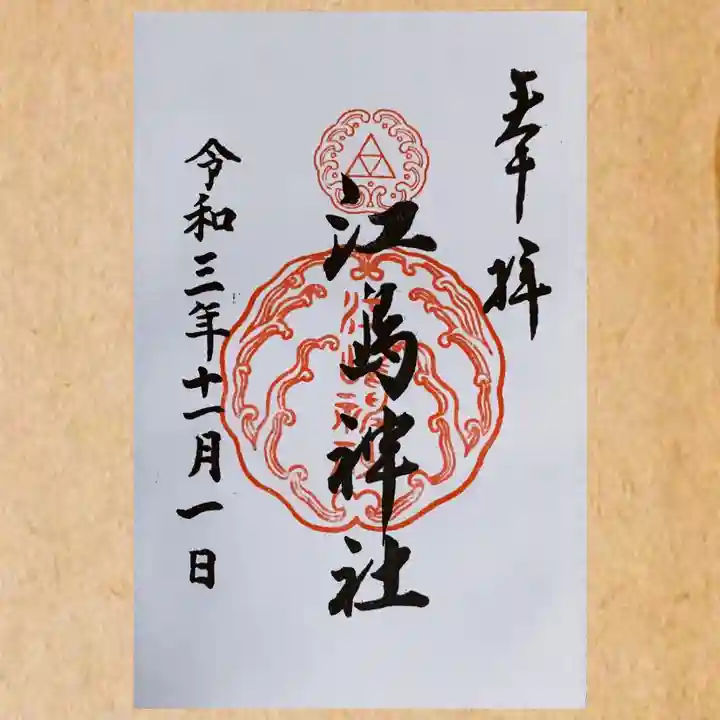 奉拝
江島神社
令和三年十一月一日